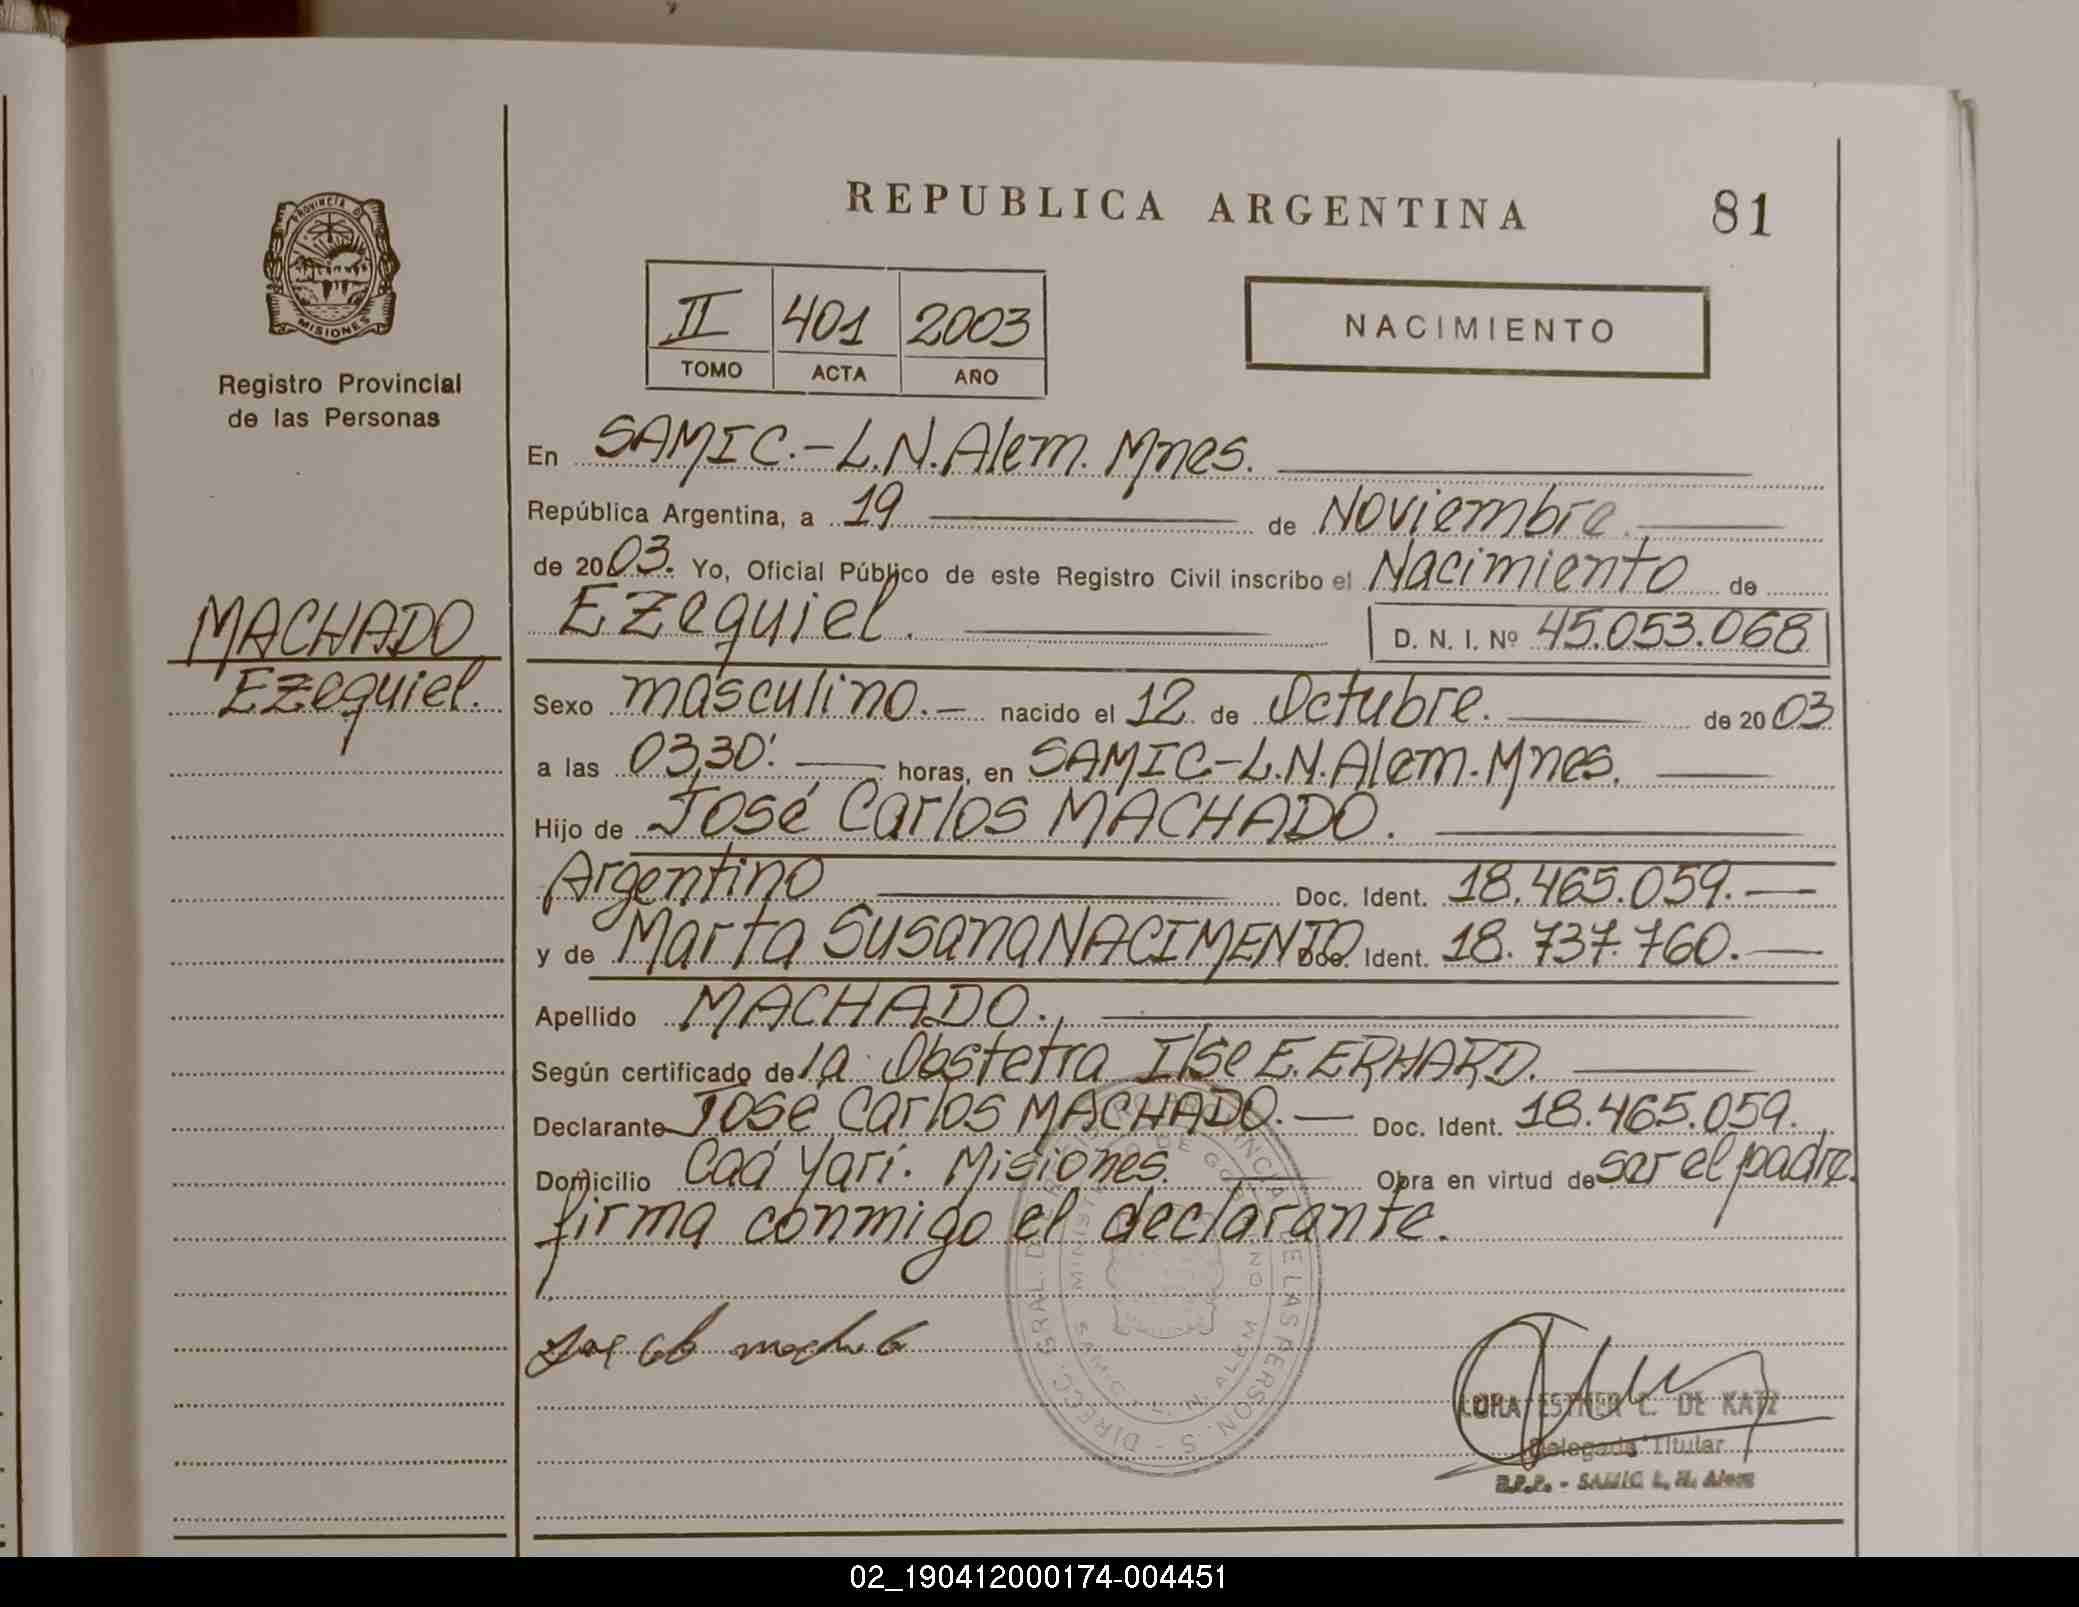 REPUBLICA ARGENTINA
81
PROVINCIA DE
MISIONES
Registro Provincial
de las Personas
II 401 2003
TOMO ACTA AÑO
NACIMIENTO
En SAMIC.-L.N.Alem. Mnes.
República Argentina, a 19 de Noviembre
de 2003. Yo, Oficial Público de este Registro Civil inscribo el Nacimiento de
MACHADO
Ezequiel.
Ezequiel. D. N. I. Nº 45.053.068
Sexo masculino.- nacido el 12 de Octubre. de 2003
a las 03,30'. horas, en SAMIC-L.N.Alem.Mnes.
Hijo de José Carlos MACHADO.
Argentino Doc. Ident. 18.465.059.
y de Marta Susana NACIMENTO Doc. Ident. 18.737.760.
Apellido MACHADO.
Según certificado de la Obstetra Ilse E. ERHARD.
Declarante José Carlos MACHADO. Doc. Ident. 18.465.059.
Domicilio Caá Yarí. Misiones. Obra en virtud de ser el padre.
firma conmigo el declarante.
DIRECC. GRAL. DE LAS PERSONAS
SAMIC L. N. ALEM
ESTHER C. DE KATZ
Delegada Titular
R.P.P. - SAMIC L. N. Alem
02_190412000174-004451